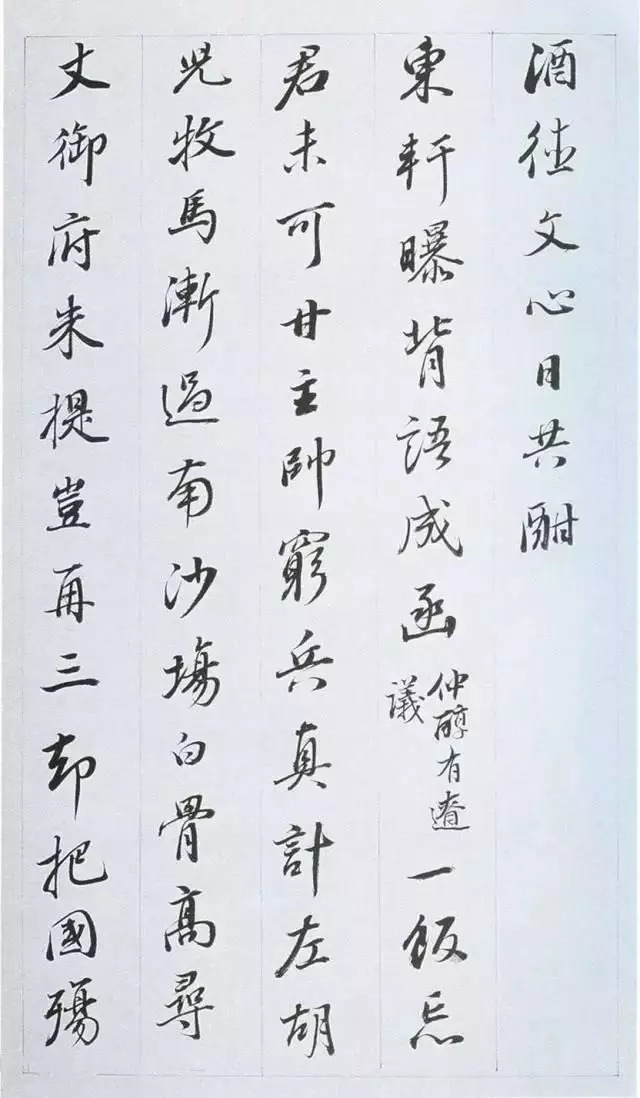 酒德文心日共酣
東軒曝背語成函仲醇有遼議一飯忘
君未可甘主帥窮兵真計左胡
児牧馬漸過南沙場白骨高尋
丈御府朱提豈再三却把國殤